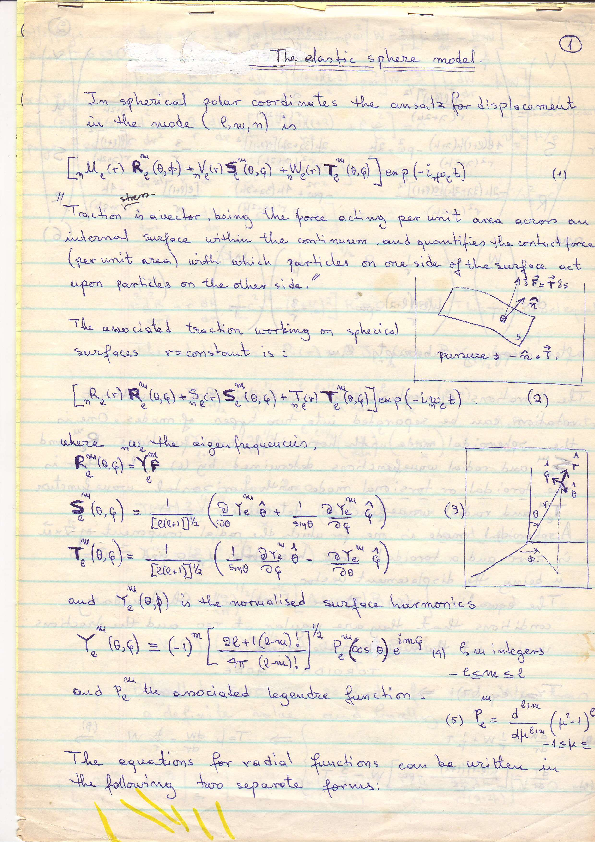 1
The elastic sphere model.
In spherical polar coordinates the ansatz for displacement
in the mode (l, m, n) is
[ₙUₗ(r) Rₗᵐ(θ,φ) + ₙVₗ(r) Sₗᵐ(θ,φ) + ₙWₗ(r) Tₗᵐ(θ,φ)] exp(-iₙωₗt) (1)
stress-
"Traction is a vector, being the force acting per unit area across an
internal surface within the continuum, and quantifies the contact force
(per unit area) with which particles on one side of the surface act
upon particles on the other side."
δF = T δS
n̂
The associated traction working on spherical
surfaces r=constant is:
pressure is - n̂ • T
[ₙRₗ(r) Rₗᵐ(θ,φ) + ₙSₗ(r) Sₗᵐ(θ,φ) + ₙTₗ(r) Tₗᵐ(θ,φ)] exp(-iₙωₗt) (2)
where ₙωₗ the eigenfrequencies,
Rₗᵐ(θ,φ) = Yₗᵐ r̂
Sₗᵐ(θ,φ) = 1/[l(l+1)]^1/2 (∂Yₗᵐ/∂θ θ̂ + 1/sinθ ∂Yₗᵐ/∂φ φ̂) (3)
Tₗᵐ(θ,φ) = 1/[l(l+1)]^1/2 (1/sinθ ∂Yₗᵐ/∂φ θ̂ - ∂Yₗᵐ/∂θ φ̂)
and Yₗᵐ(θ,φ) is the normalised surface harmonics
Yₗᵐ(θ,φ) = (-1)ᵐ [2l+1(l-m)!/4π (l-m)!]^1/2 Pₗᵐ(cos θ) e^imφ (4) l, m integers
-l≤m≤l
and Pₗᵐ the associated legendre function.
(5) Pₗᵐ = d^l+m/dμ^l+m (μ²-1)^l
-1≤μ≤
The equations for radial functions can be written in
the following two separate forms: